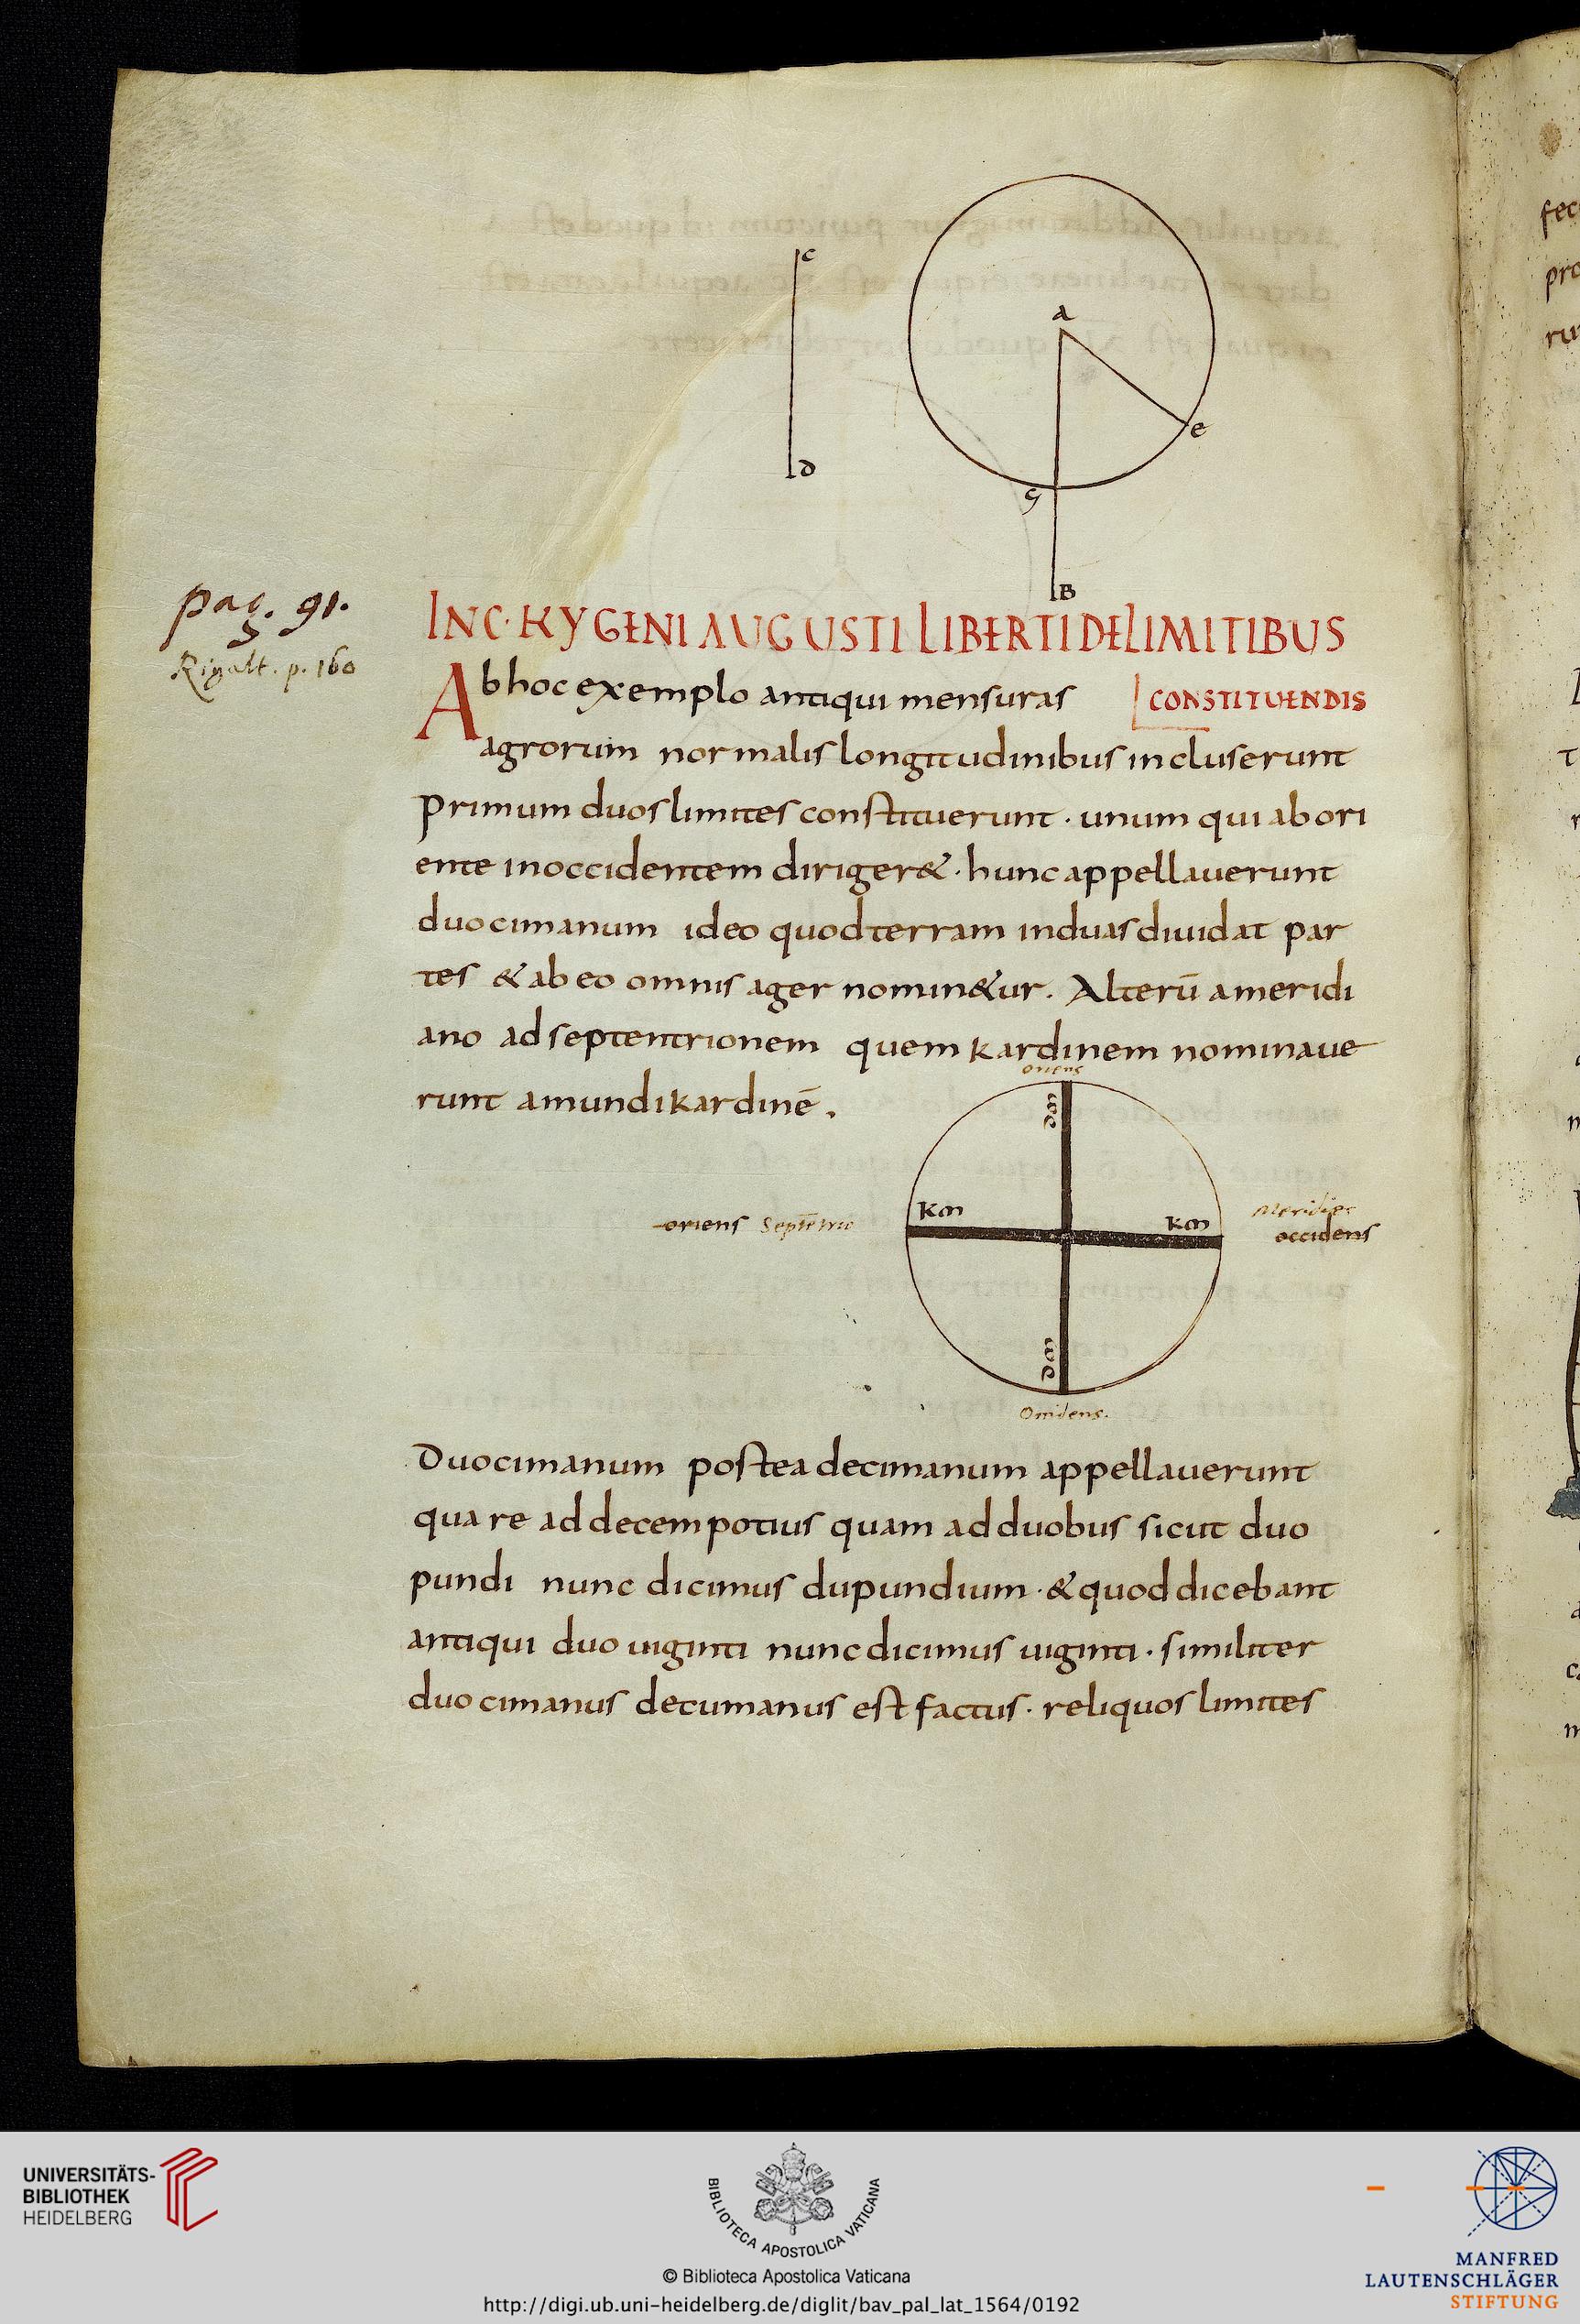 c
a
e
d
g
B
pag. 91.
Rigalt. p. 160
INC· HYGENI AUGUSTI LIBERTI DE LIMITIBUS
CONSTITUENDIS
Ab hoc exemplo antiqui mensuras
agrorum normalis longitudinibus incluserunt
primum duos limites constituerunt · unum qui ab ori
ente in occidentem diriger& · hunc appellauerunt
duocimanum ideo quod terram in duas diuidat par
tes & ab eo omnis ager nomin&ur. Alterū a meridi
ano ad septentrionem quem kardinem nominaue
runt a mundi kardinē.
oriens
dm
km
km
oriens Septētrio
Meridies
occidens
dm
Occidens.
Duocimanum postea decimanum appellauerunt
quare ad decem potius quam ad duobus sicut duo
pundi nunc dicimus dupundium · & quod dicebant
antiqui duo uiginti nunc dicimus uiginti · similiter
duo cimanus decumanus est factus · reliquos limites
UNIVERSITÄTS-
BIBLIOTHEK
HEIDELBERG
BIBLIOTECA APOSTOLICA VATICANA
© Biblioteca Apostolica Vaticana
http://digi.ub.uni-heidelberg.de/diglit/bav_pal_lat_1564/0192
MANFRED
LAUTENSCHLÄGER
STIFTUNG